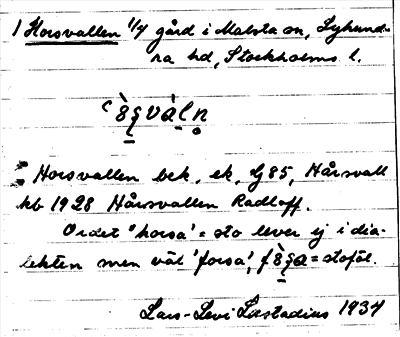 1 Horsvallen 1/4 gård i Malsta sn, Lyhund-
ra hd, Stockholms l.
Horsvallen bek. ek. G 85, Hårsvall
kb 1928 Hårsvallen Radloff.
Ordet 'horsa' = sto lever ej i dia-
lekten men väl 'forsa',
Lars-Levi Læstadius 1934